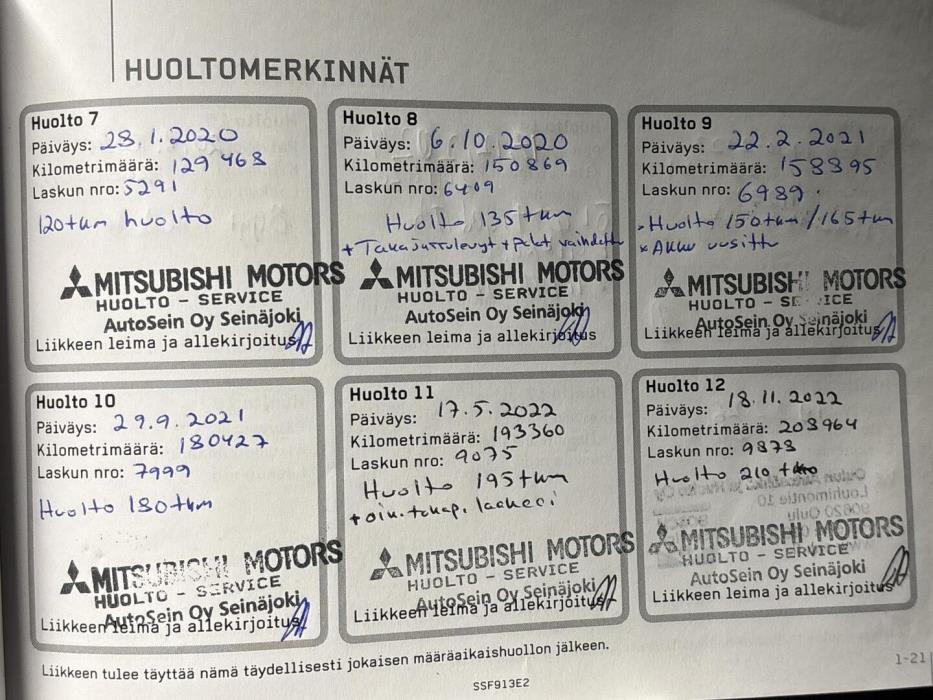 HUOLTOMERKINNÄT
Huolto 7
Päiväys: 28.1.2020
Kilometrimäärä: 129468
Laskun nro: 5291
120tkm huolto
MITSUBISHI MOTORS
HUOLTO - SERVICE
AutoSein Oy Seinäjoki
Liikkeen leima ja allekirjoitus
Huolto 8
Päiväys: 6.10.2020
Kilometrimäärä: 150869
Laskun nro: 6409
Huolto 135tkm
+ Takajarrulevyt + palat vaihdettu
MITSUBISHI MOTORS
HUOLTO - SERVICE
AutoSein Oy Seinäjoki
Liikkeen leima ja allekirjoitus
Huolto 9
Päiväys: 22.2.2021
Kilometrimäärä: 158395
Laskun nro: 6989.
Huolto 150tkm/165tkm
× Akku uusittu
MITSUBISHI MOTORS
HUOLTO - SERVICE
AutoSein Oy Seinäjoki
Liikkeen leima ja allekirjoitus
Huolto 10
Päiväys: 29.9.2021
Kilometrimäärä: 180427
Laskun nro: 7999
Huolto 180tkm
MITSUBISHI MOTORS
HUOLTO - SERVICE
AutoSein Oy Seinäjoki
Liikkeen leima ja allekirjoitus
Huolto 11
Päiväys: 17.5.2022
Kilometrimäärä: 193360
Laskun nro: 9075
Huolto 195tkm
+ oik. takap. laakeri
MITSUBISHI MOTORS
HUOLTO - SERVICE
AutoSein Oy Seinäjoki
Liikkeen leima ja allekirjoitus
Huolto 12
Päiväys: 18.11.2022
Kilometrimäärä: 208964
Laskun nro: 9873
Huolto 210 tkm
MITSUBISHI MOTORS
HUOLTO - SERVICE
AutoSein Oy Seinäjoki
Liikkeen leima ja allekirjoitus
Liikkeen tulee täyttää nämä täydellisesti jokaisen määräaikaishuollon jälkeen.
1-21
SSF913E2